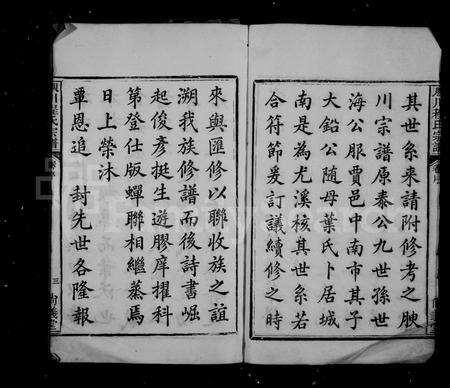 其世系來請附修考之腴
川宗譜原泰公九世孫世
海公服賈邑中南市其子
大鉛公隨母葉氏卜居城
南是為尤溪核其世系若
合符節爰訂議續修之時
來與匯修以聯收族之誼
溯我族修譜而後詩書崛
起俊彥挺生遊膠庠擢科
第登仕版蟬聯相繼蒸蒸焉
日上榮沐
覃恩追封先世各隆報
三